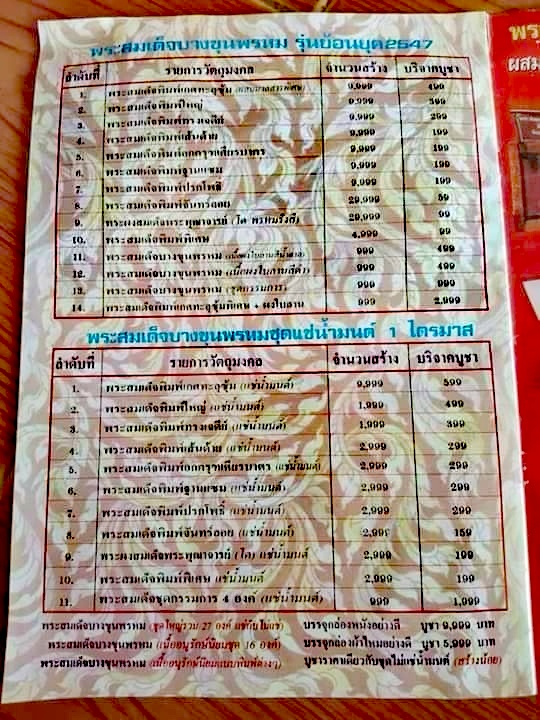 พระสมเด็จบางขุนพรหม รุ่นย้อนยุค2547
ลำดับที่ รายการวัตถุมงคล จำนวนสร้าง บริจาคบูชา
1. พระสมเด็จพิมพ์เกศทะลุซุ้ม (ผสมมวลสารพิเศษ) 9,999 499
2. พระสมเด็จพิมพ์ใหญ่ 9,999 399
3. พระสมเด็จพิมพ์ทรงเจดีย์ 9,999 299
4. พระสมเด็จพิมพ์เส้นด้าย 9,999 199
5. พระสมเด็จพิมพ์อกครุฑเศียรบาตร 9,999 199
6. พระสมเด็จพิมพ์ฐานแซม 9,999 199
7. พระสมเด็จพิมพ์ปรกโพธิ์ 9,999 199
8. พระสมเด็จพิมพ์จันทร์ลอย 29,999 59
9. พระผงสมเด็จพระพุฒาจารย์ (โต พรหมรังสี) 29,999 99
10. พระสมเด็จพิมพ์พิเศษ 4,999 99
11. พระสมเด็จบางขุนพรหม (เนื้อผงใบลานสีน้ำตาล) 999 499
12. พระสมเด็จบางขุนพรหม (เนื้อผงใบลานสีดำ) 999 499
13. พระสมเด็จบางขุนพรหม (ชุดกรรมการ) 999 999
14. พระสมเด็จพิมพ์เกศทะลุซุ้มพิเศษ + ผงใบลาน 999 2,999
พระสมเด็จบางขุนพรหมชุดแช่น้ำมนต์ 1 ไตรมาส
ลำดับที่ รายการวัตถุมงคล จำนวนสร้าง บริจาคบูชา
1. พระสมเด็จพิมพ์เกศทะลุซุ้ม (แช่น้ำมนต์) 9,999 599
2. พระสมเด็จพิมพ์ใหญ่ (แช่น้ำมนต์) 1,999 499
3. พระสมเด็จพิมพ์ทรงเจดีย์ (แช่น้ำมนต์) 1,999 399
4. พระสมเด็จพิมพ์เส้นด้าย (แช่น้ำมนต์) 2,999 299
5. พระสมเด็จพิมพ์อกครุฑเศียรบาตร (แช่น้ำมนต์) 2,999 299
6. พระสมเด็จพิมพ์ฐานแซม (แช่น้ำมนต์) 2,999 299
7. พระสมเด็จพิมพ์ปรกโพธิ์ (แช่น้ำมนต์) 2,999 299
8. พระสมเด็จพิมพ์จันทร์ลอย (แช่น้ำมนต์) 2,999 159
9. พระผงสมเด็จพระพุฒาจารย์ (โต) แช่น้ำมนต์ 2,999 199
10. พระสมเด็จพิมพ์พิเศษ แช่น้ำมนต์ 2,999 199
11. พระสมเด็จชุดกรรมการ 4 องค์ (แช่น้ำมนต์) 999 1,999
พระสมเด็จบางขุนพรหม (ชุดใหญ่รวม 27 องค์ แช่กับไม่แช่) บรรจุกล่องหนังอย่างดี บูชา 9,999 บาท
พระสมเด็จบางขุนพรหม (เนื้ออนุรักษ์นิยมชุด 16 องค์) บรรจุกล่องผ้าไหมอย่างดี บูชา 5,999 บาท
พระสมเด็จบางขุนพรหม (เนื้ออนุรักษ์นิยมแบบพิมพ์ต่างๆ) บูชาราคาเดียวกับชุดไม่แช่น้ำมนต์ (สร้างน้อย)
พระ
ผสม